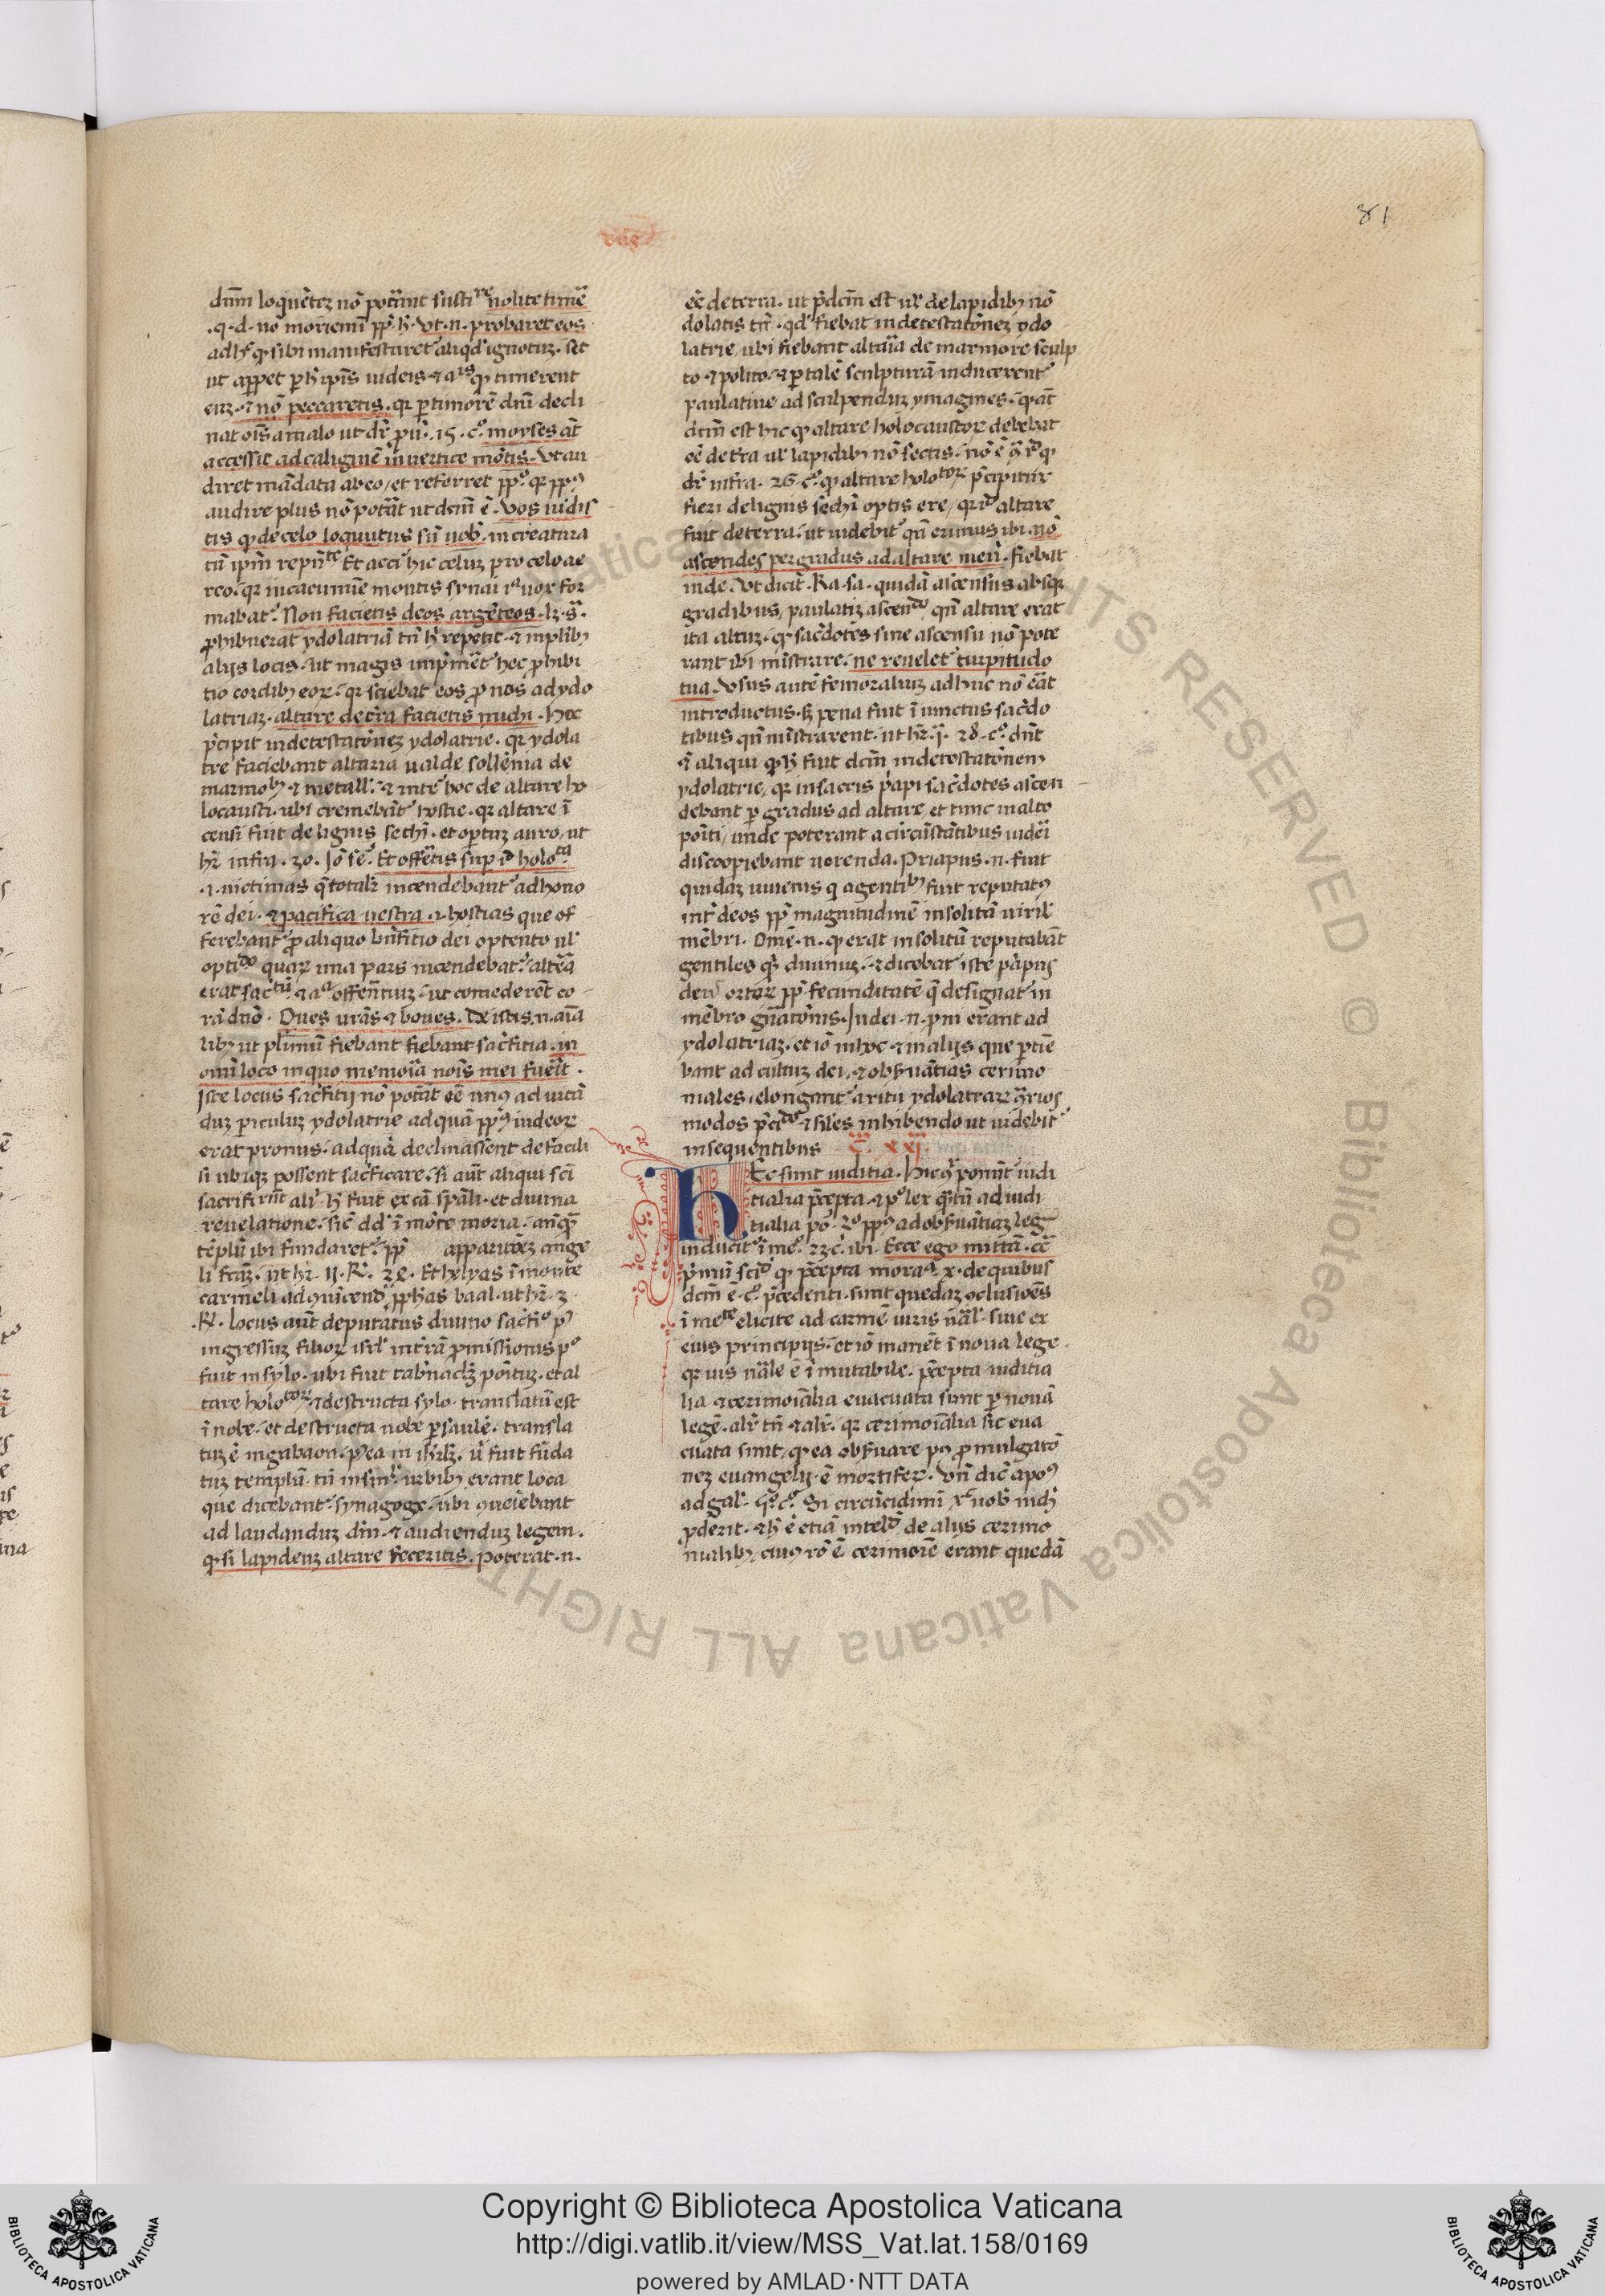 81
dnm loquētez nō potāt susti nolite timē
.q.d. nō moriemī ꝓpt h. vt.n. probaret eos
ad h ꝙ sibi manifestaret aliqd ignotuz. set
ut appet p h ipis iudeis ⁊ ꝙ timerent
euz. ⁊ nō peccaretis. qr p timorē dnī decli
nat ois a malo ut dr ꝓu. 15. c. moyses at
accessit ad caliginē in uertice mōtis. vt au
diret mādata ab eo / et referret
audire plus nō potāt ut dcm ē. vos uidis
tis ꝙ de celo loquutus sū uob. in creatura
tn ipm Et acci hic celuz pro celo ae
reo. qr in cacumie montis synai uox for
mabat. Non facietis deos argēteos.
ꝓhibuerat ydolatriā tn h repetit. ⁊ in plib
alijs locis. ut magis imp̄met hec ꝓhibi
tio cordib eoz. qr sciebat eos ꝓnos ad ydo
latriaz. altare de trā facietis michi. hoc
p̄cipit in detestatōnez ydolatrie. qr ydola
tre faciebant altaria ualde sollēnia de
marmo ⁊ metall. ⁊ inte hoc de altare ho
locausti. ubi cremebāt hostie. qr altare ī
censi fuit de lignis sechī. et optuz auro / ut
hr infra. 30. Et offētis sup holo
.i. uictimas q totalr incendebant ad hono
rē dei. ⁊ pacifica uestra .i. hostias que of
ferebant ꝓ aliquo bnfitio dei optento ul
opti quaz una pars incendebat. altā
erat sac ⁊ a offētium. ut comederēt co
rā dnō. Oues urās ⁊ boues. De istis .n. aīa
lib ut plīmū fiebant fiebant sac̄fitia. in
omī loco in quo memoīa nois mei fuēit.
Iste locus sac̄fitij nō potāt eē un9 ad uitā
duz piculuz ydolatrie ad quā pp9 iudeoz
erat pronus. ad quā declinassent de facili
si ubiqz possent sac̄ficare. si aut aliqui scī
sacrifi alr h fuit ex cā spāli. et diuina
reuelatione. sic dd ī mōte moria. anqȝ
tēplū ibi fundaret. ꝓpt apparitōez ange
li fcaz. ut hr. ij. R. 24. Et helyas ī monte
carmeli ad ꝯuīcend ꝓphas baal. ut hr. 3.
.R. locus aut deputatus diuino sac̄fi
ingressuz filioz isrl in trā ꝓmissionis p
fuit in sylo. ubi fuit tabnaclz poītuz. et al
tare holo ⁊ destructa sylo. translatū est
ī nobe. et destructa nobe p saulē. transla
tuz ē in gabaon. pea in ihrlz. u fuit fūda
tuz templū. tn in sin urbib erant loca
que dicebant synagoge. ubi ꝯueiebant
ad laudanduz dm. ⁊ audienduz legem.
ꝙ si lapideuz altare feceritis. poterat .n.
eē de terra. ut p̄dcm est ul de lapidib nō
dolatis tn. qd fiebat in detestatōnez ydo
latrie / ubi fiebant altaīa de marmore sculp
to ⁊ polito. ⁊ p talē sculpturā inducerent
paulatiue ad sculpenduz ymagines. ꝙ āt
dcm est hic ꝙ altare holocaustoz debebat
eē de trā ul lapidib nō sectis. nō ē
dr infra. 26. c. ꝙ altare holo p̄cipitur
fieri de lignis sechī optis ere / qr altare
fuit de terra. ut uidebit qn erimus ibi. nō
ascendes per gradus ad altare meū. fiebat
inde. vt dicit. Ra. sa. quidā ascensus absqz
gradibus, paulatiz ascen qn altare erat
ita altuz. ꝙ sac̄dotes sine ascensu nō pote
rant ibi mīstrare. ne reuelet turpitudo
tua. vsus autē femoraliuz adhuc nō eāt
introductus. s pena fuit ī iunctus sac̄do
tibus qn mīstrarent. ut hr. j. 28. c. dnt
⁊ aliqui ꝙ h fuit dcm in detestatōnem
ydolatrie, qr in sacris p̄api sac̄dotes ascen
debant p gradus ad altare, et tunc in alto
poīti / unde poterant a circūstātibus uideri
discoopiebant uerenda. Priapus .n. fuit
quidaz iuuenis q a gentib fuit reputat9
int deos ꝓpt magnitudinē insolitā uiril
mēbri. Omē .n. ꝙ erat insolitū reputabāt
gentiles qȝ diuinuz. ⁊ dicebat iste p̄apus
de ortoz ꝓpt fecunditatē q designat in
mēbro gnatōnis. Iudei .n. ꝓni erant ad
ydolatriaz. et iō in hoc ⁊ in alijs que ptiē
bant ad cultuz dei, ⁊ obsuātias cerimo
niales, elongant a ritu ydolatraz
modos ⁊ siles inhibendo ut uidebit
in sequentibus c. xxj.
hEc sunt iuditia. Hic ponūt iudi
tialia p̄cepta. ⁊ p ler qtū ad iudi
tialia po. pp9 ad obsuātiaz leg
inducit ī me. 23 c. ibi. Ecce ego mittā. cc
p̄mū sci ꝙ p̄cepta mora x. de quibus
dcm ē. c. p̄cedenti. sunt quedaz ꝯclusiōes
ī me elicite ad carmē iuris nāl. siue ex
eius principijs. et iō manēt ī noua lege.
qr ius nāle ē ī mutabile. p̄cepta iuditia
lia ⁊ cerimoīalia euacuata sunt p nouā
legē. alr tn ⁊ alr. qr cerimoīalia sic eua
cuata sunt, ꝙ ea obsuare po ꝓmulgatō
nez euangelij. ē mortifez. vn dic apo9
ad gal. 5. c. Si circūcidimī x uob nich
ꝓderit. ⁊ h ē etiā intel de alijs cerimo
nialib, cui9 rō ē. cerimoīe erant quedā
Copyright © Biblioteca Apostolica Vaticana
http://digi.vatlib.it/view/MSS_Vat.lat.158/0169
powered by AMLAD·NTT DATA
BIBLIOTECA APOSTOLICA VATICANA
BIBLIOTECA APOSTOLICA VATICANA
© Biblioteca Apostolica Vaticana ALL RIGHTS RESERVED